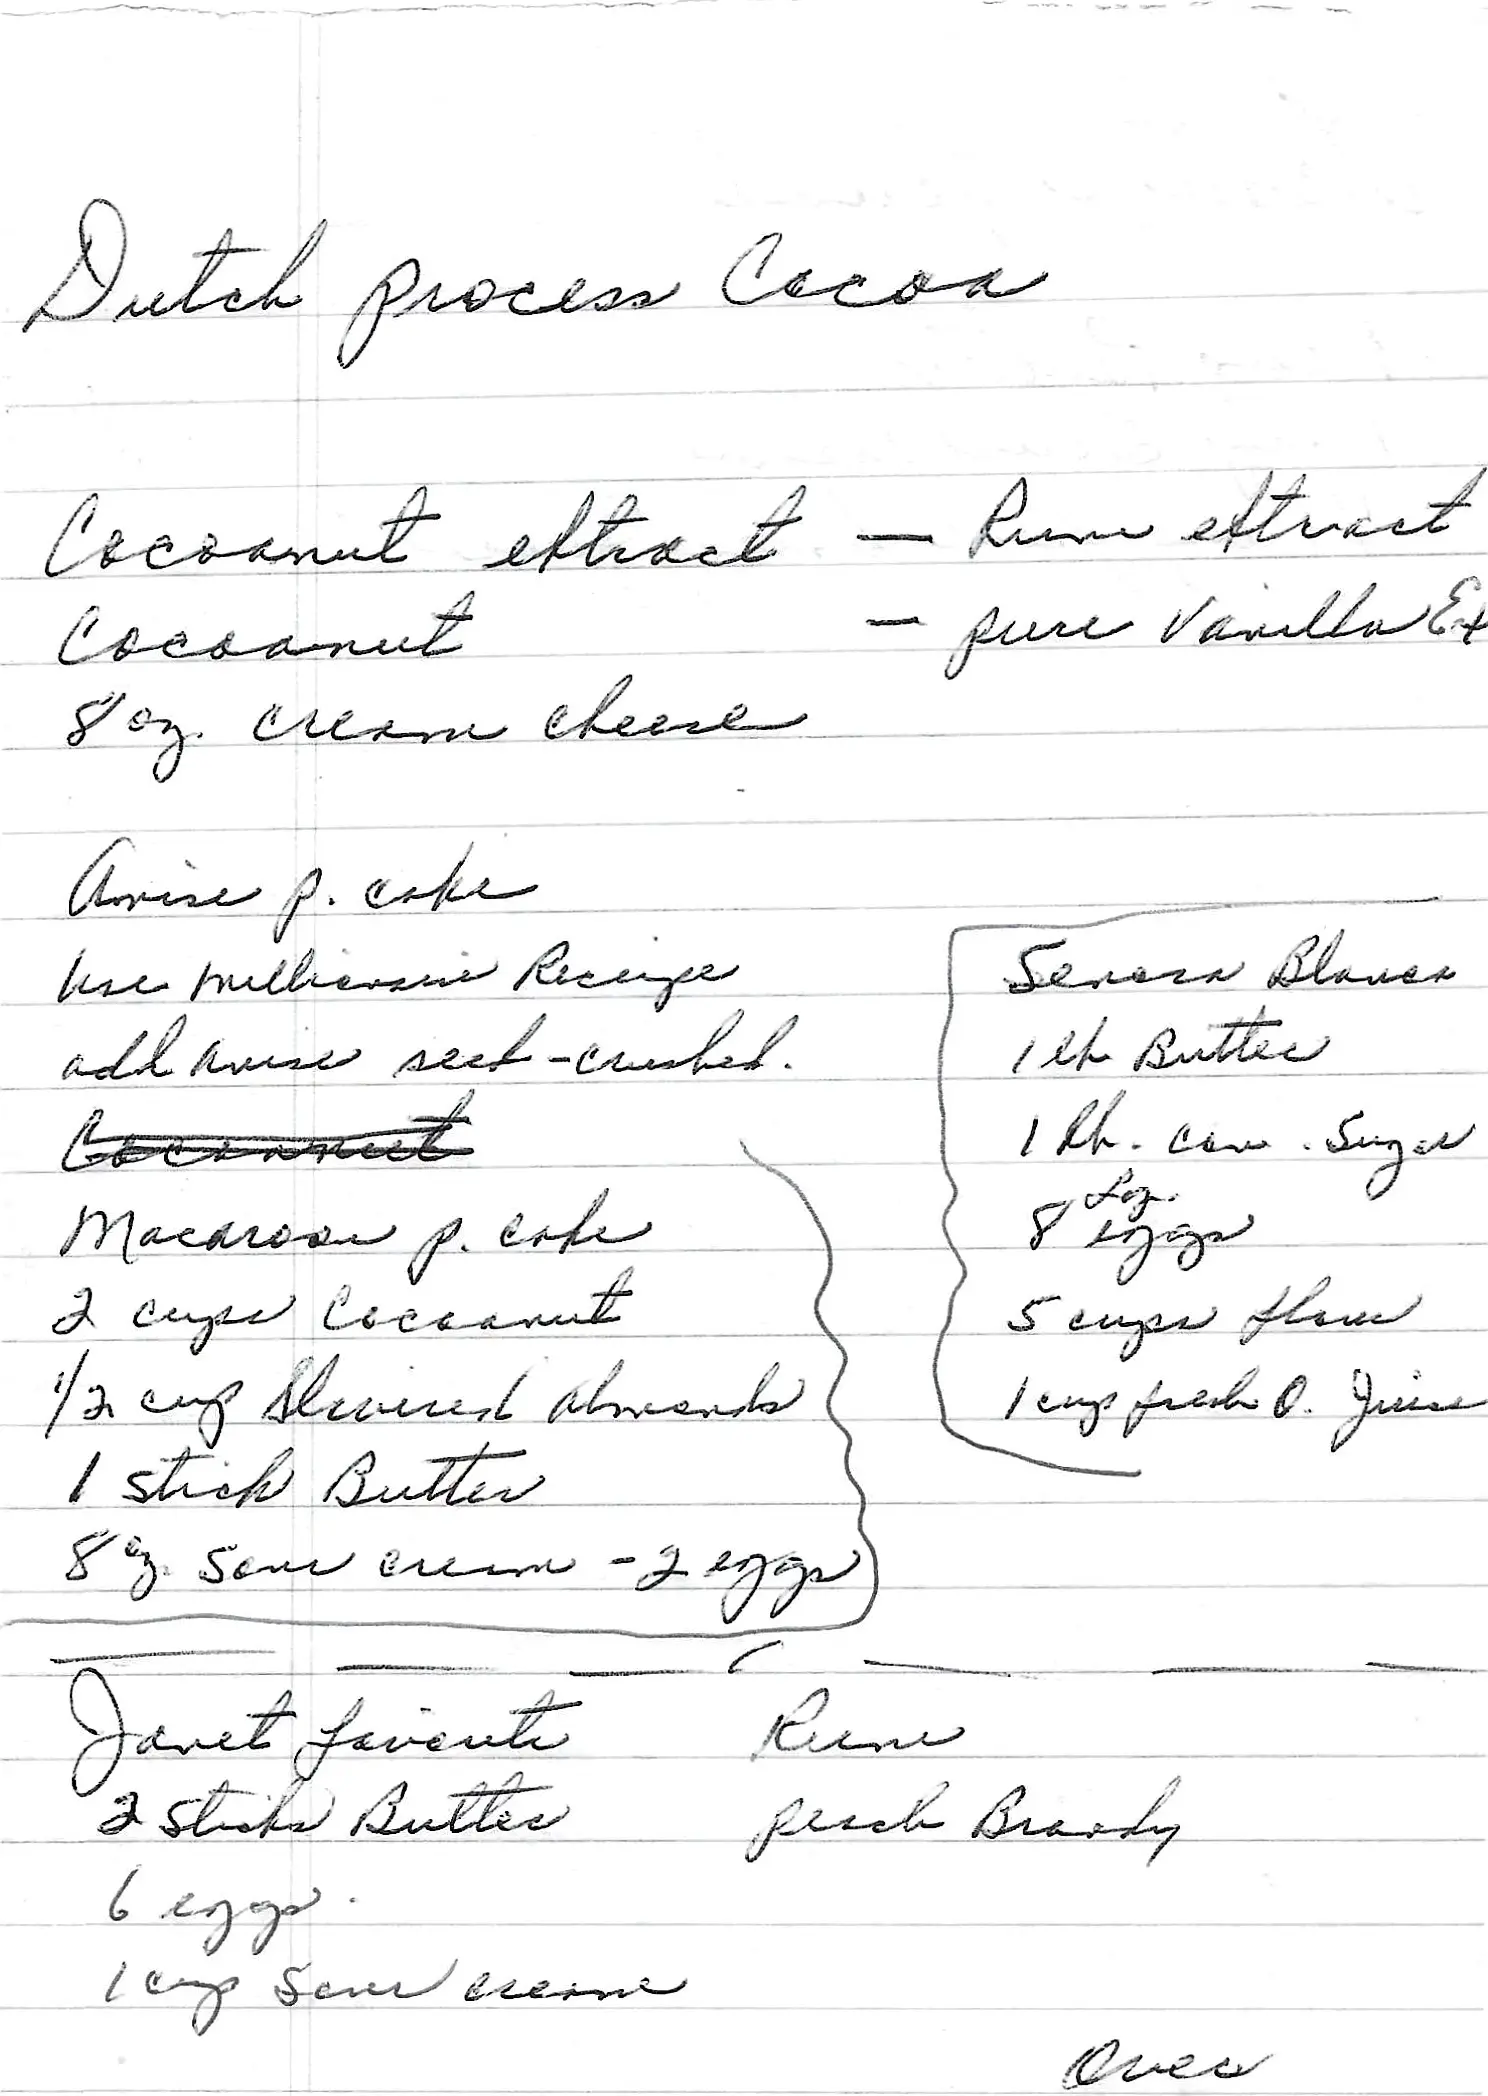 Dutch process Cocoa
Cocoanut extract — Rum extract
Cocoanut — pure Vanilla Ex
8 oz. cream cheese
Anise p. cake
Use Millionaire Receipe
add anise seed - crushed.
Cocoanut
Macaroon p. cake
2 cups Cocoanut
1/2 cup Slivered almonds
1 stick Butter
8 oz. Sour cream - 2 eggs
Senora Blanca
1 lb Butter
1 lb. con. Sugar
Lg.
8 eggs
5 cups flour
1 cup fresh O. Juice
Janet favorite
2 Sticks Butter
6 eggs.
1 cup Sour cream
Rum
peach Brandy
Over